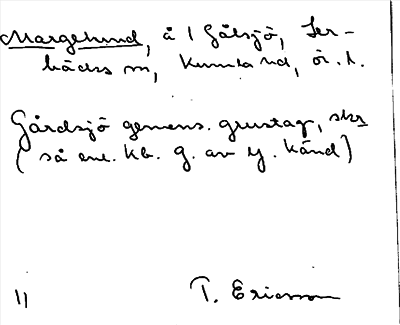 Margelund, å 1 Gålsjö, Ler-
bäcks sn, Kumla hd, ör. l.
Gårdsjö gemens. grustag, skr
( så enl. kb. g. av y. känd)
11 T. Ericsson